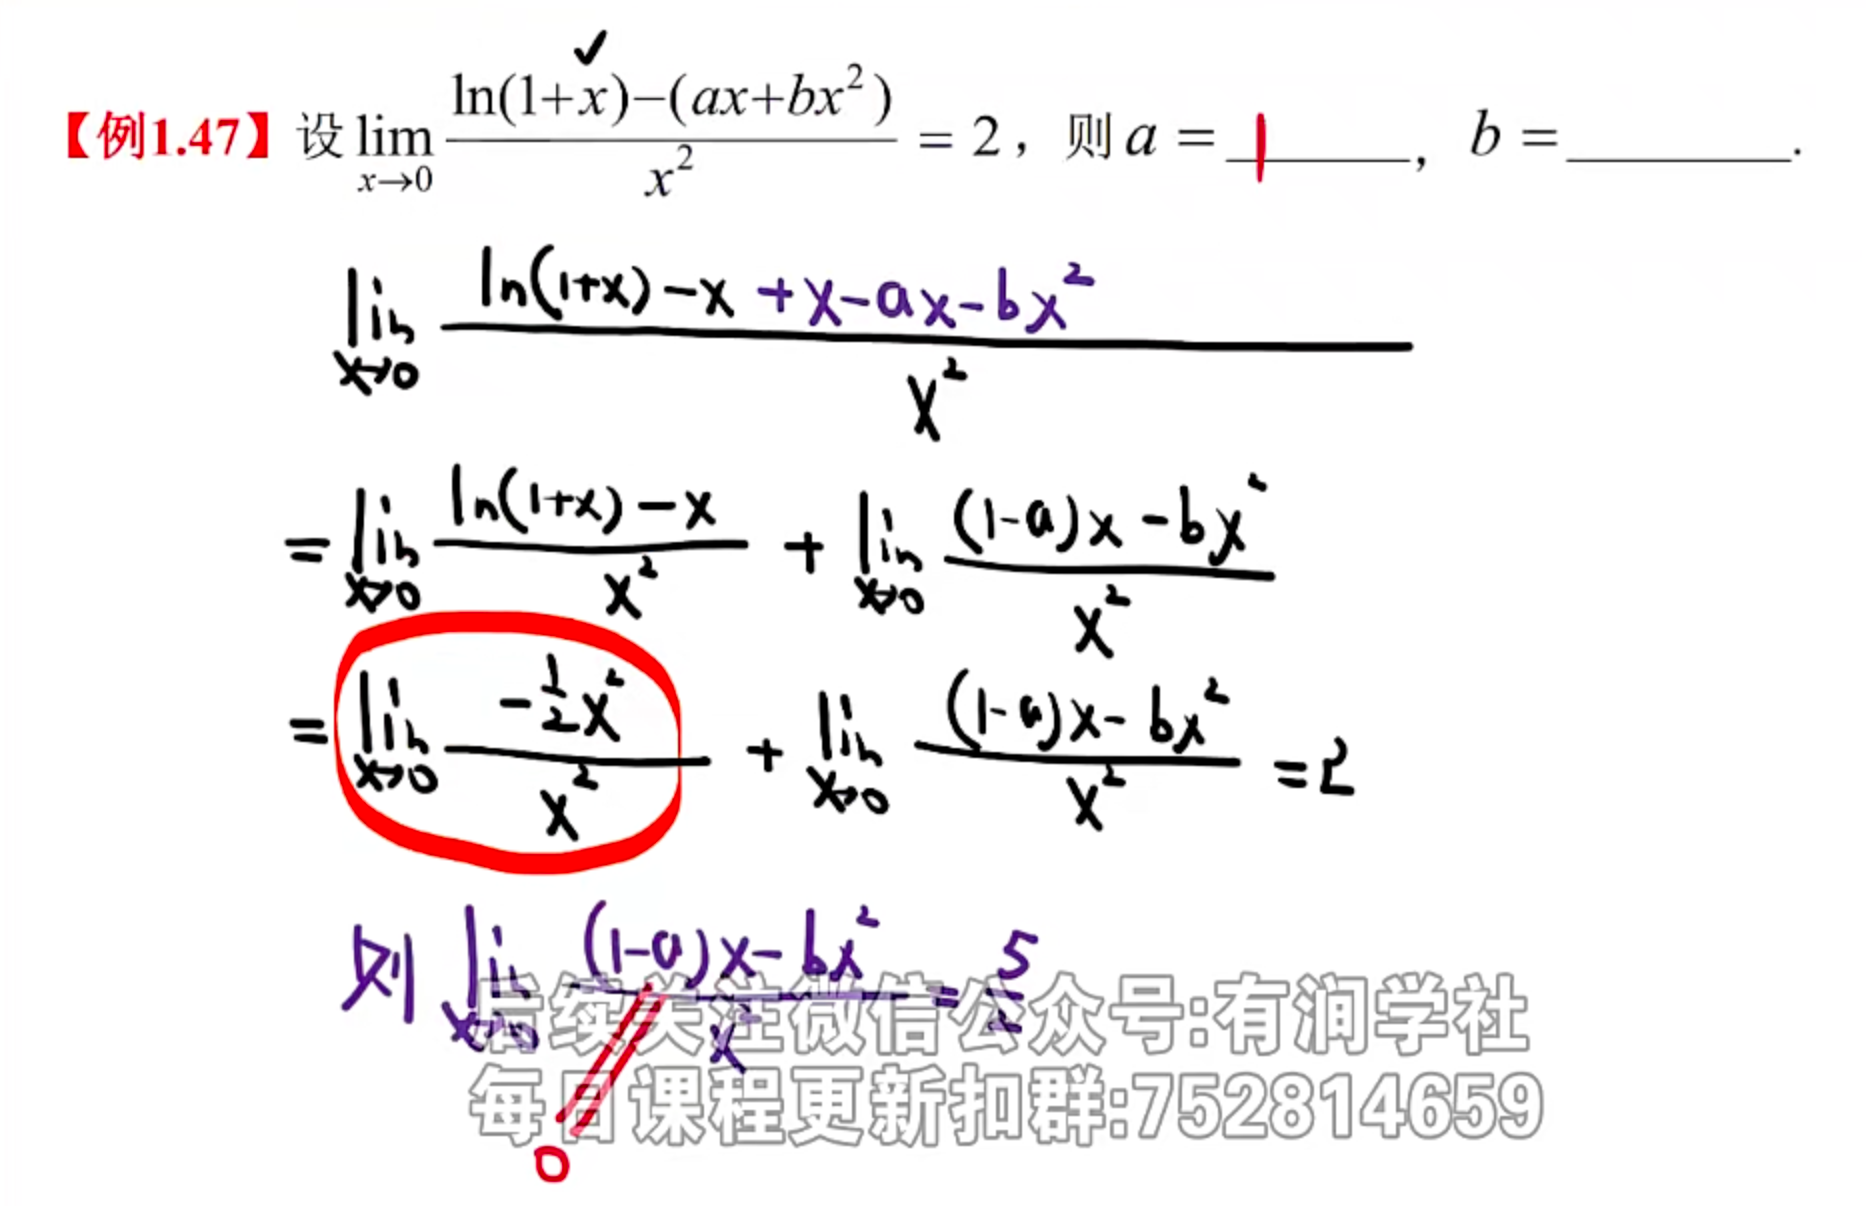 【例1.47】设 lim x→0 (ln(1+x)−(ax+bx²))/x² = 2，则 a = 1， b = ______.
lim x→0 (ln(1+x)−x+x−ax−bx²)/x²
= lim x→0 (ln(1+x)−x)/x² + lim x→0 ((1−a)x−bx²)/x²
= lim x→0 (−½x²)/x² + lim x→0 ((1−a)x−bx²)/x² = 2
则 lim x→0 ((1−a)x−bx²)/x² = 5/2
后续关注微信公众号:有润学社
每日课程更新扣群:752814659
0